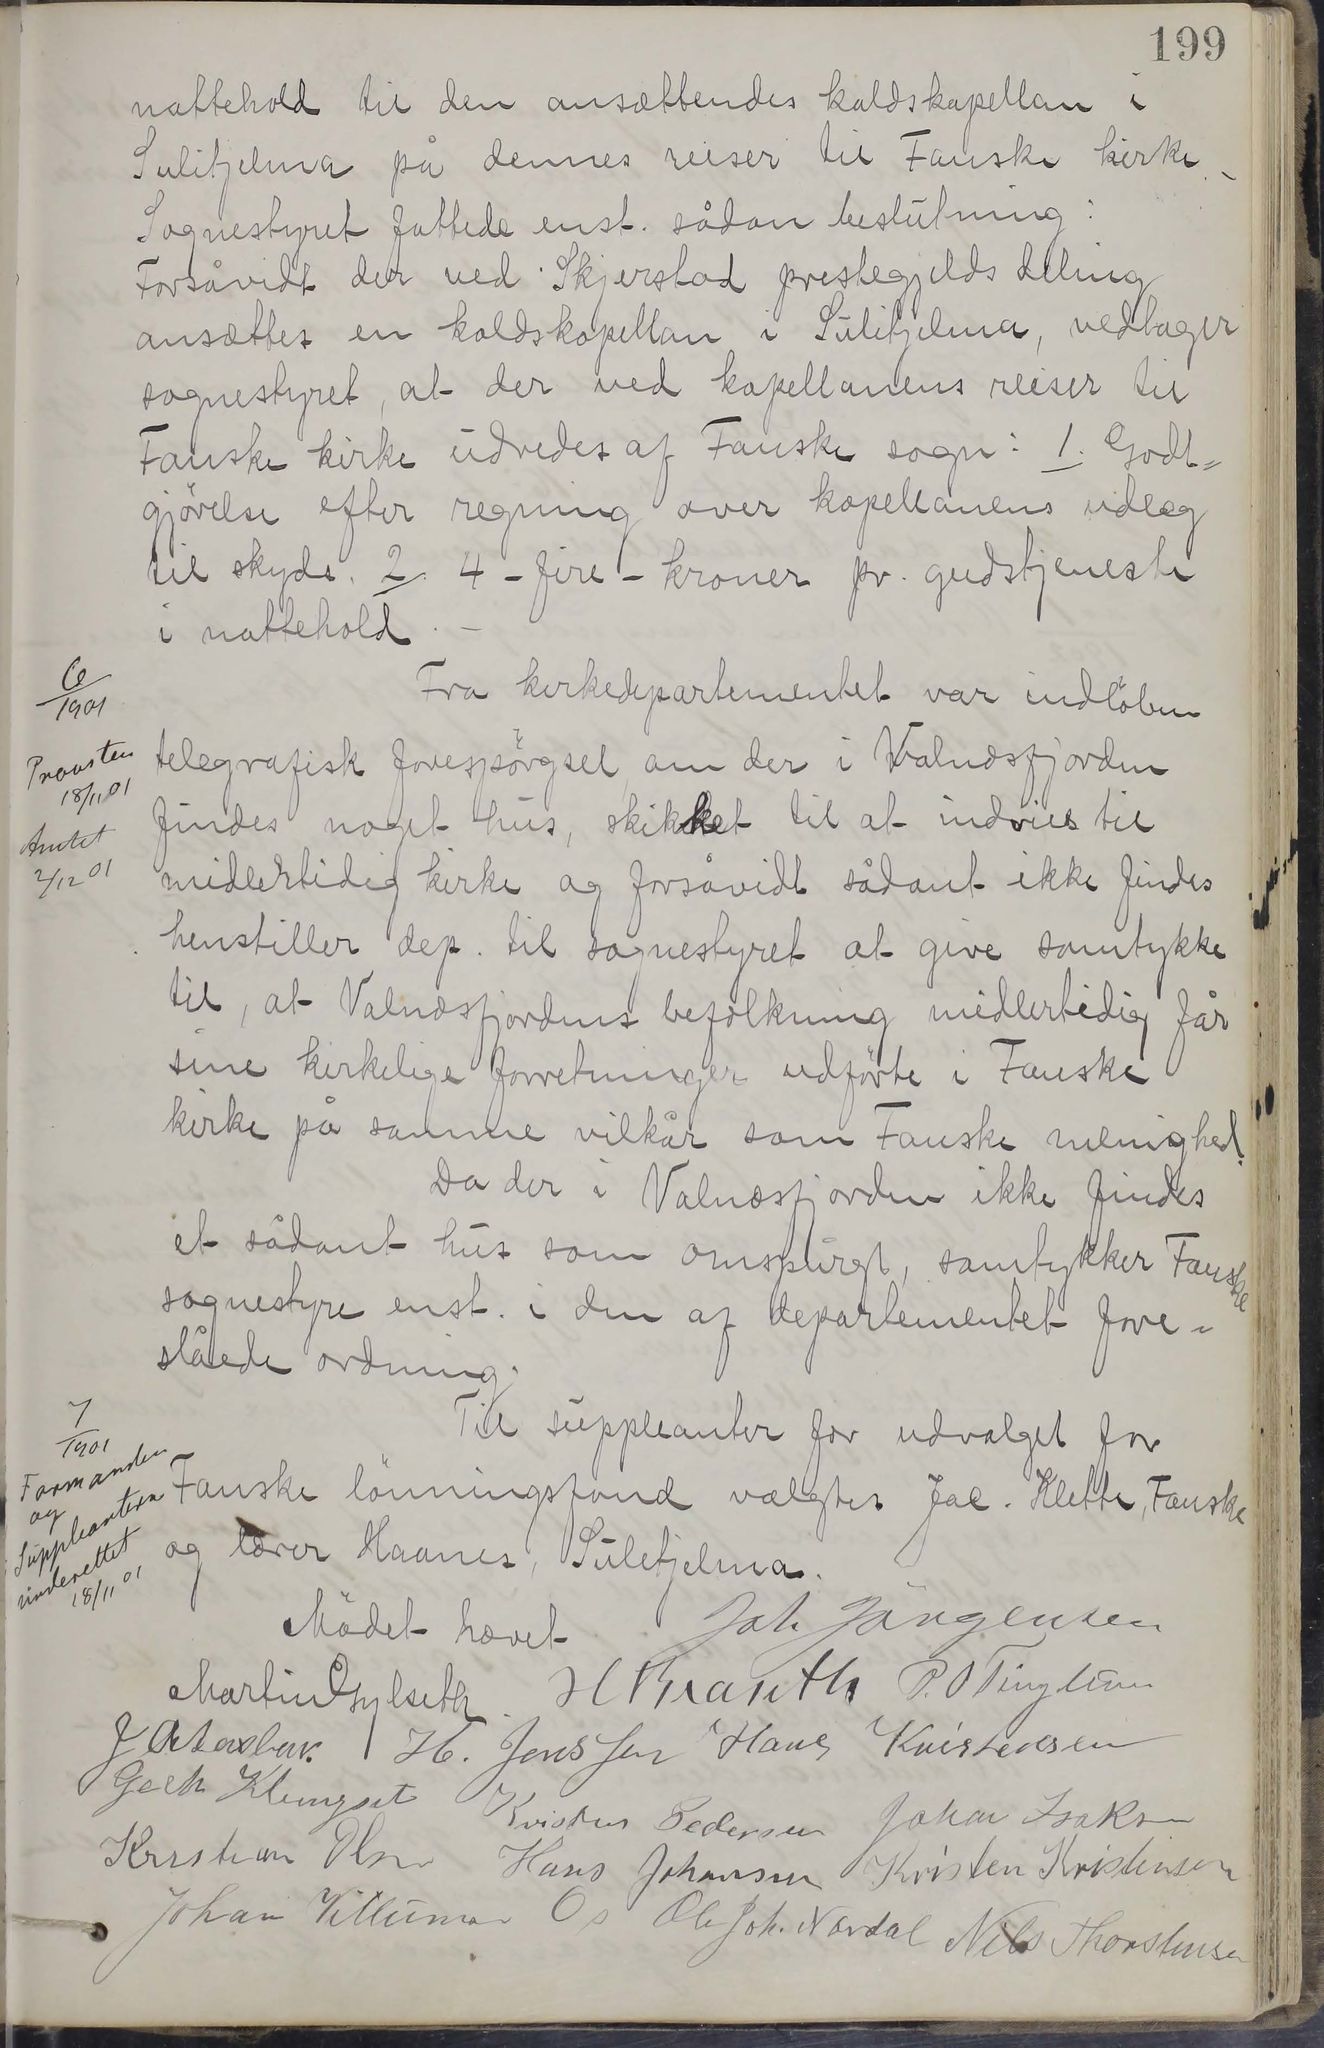 199
nattehold til den ansættendes kaldskapellan i
Sulitjelma på dennes reiser til Fauske kirke. -
Sognestyret fattede enst. sådan beslutning:
Forsåvidt der ved Skjerstad prestegjelds deling
ansættes en kaldskapellan i Sulitjelma, vedtager
sognestyret, at der ved kapellanens reiser til
Fauske kirke udredes af Fauske sogn: 1. Godt=
gjörelse efter regning over kapellanens udlæg
til skyds. 2. 4 - fire - kroner pr. gudstjeneste
i nattehold. -
6/1901
Fra kirkedepartementet var indlöben
Provsten
18/11 01
telegrafisk forespörgsel, om der i Valnæsfjorden
Amtet
2/12 01
findes noget hus, skikket til at indvies til
midlertidig kirke og forsåvidt sådant ikke findes
henstiller dep. til sognestyret at give samtykke
til, at Valnæsfjordens befolkning midlertidig får
sine kirkelige forretninger udförte i Fauske
kirke på samme vilkår som Fauske menighed.
Da der i Valnæsfjorden ikke findes
et sådant hus som omspurgt, samtykker Fauske
sognestyre enst. i den af departementet fore=
slåede ordning.
7/1901
Til suppleanter for udvalget for
Formanden
og
Suppleanterne
underettet
18/11 01
Fauske lönningsfond valgtes Jac. Klette, Fauske
og lærer Haanes, Sulitjelma.
Mödet hævet
Joh Jörgensen
Martin Gylseth. P. O Tinglum
H. Jenssen Hans Kristensen
Klungset Kristen Pedersen Johan Isaksen
Kristian Olsen Hans Johansen Kristen Kristensen
Johan Villumsen Os Ole Joh. Nordal Nils Thorstensen